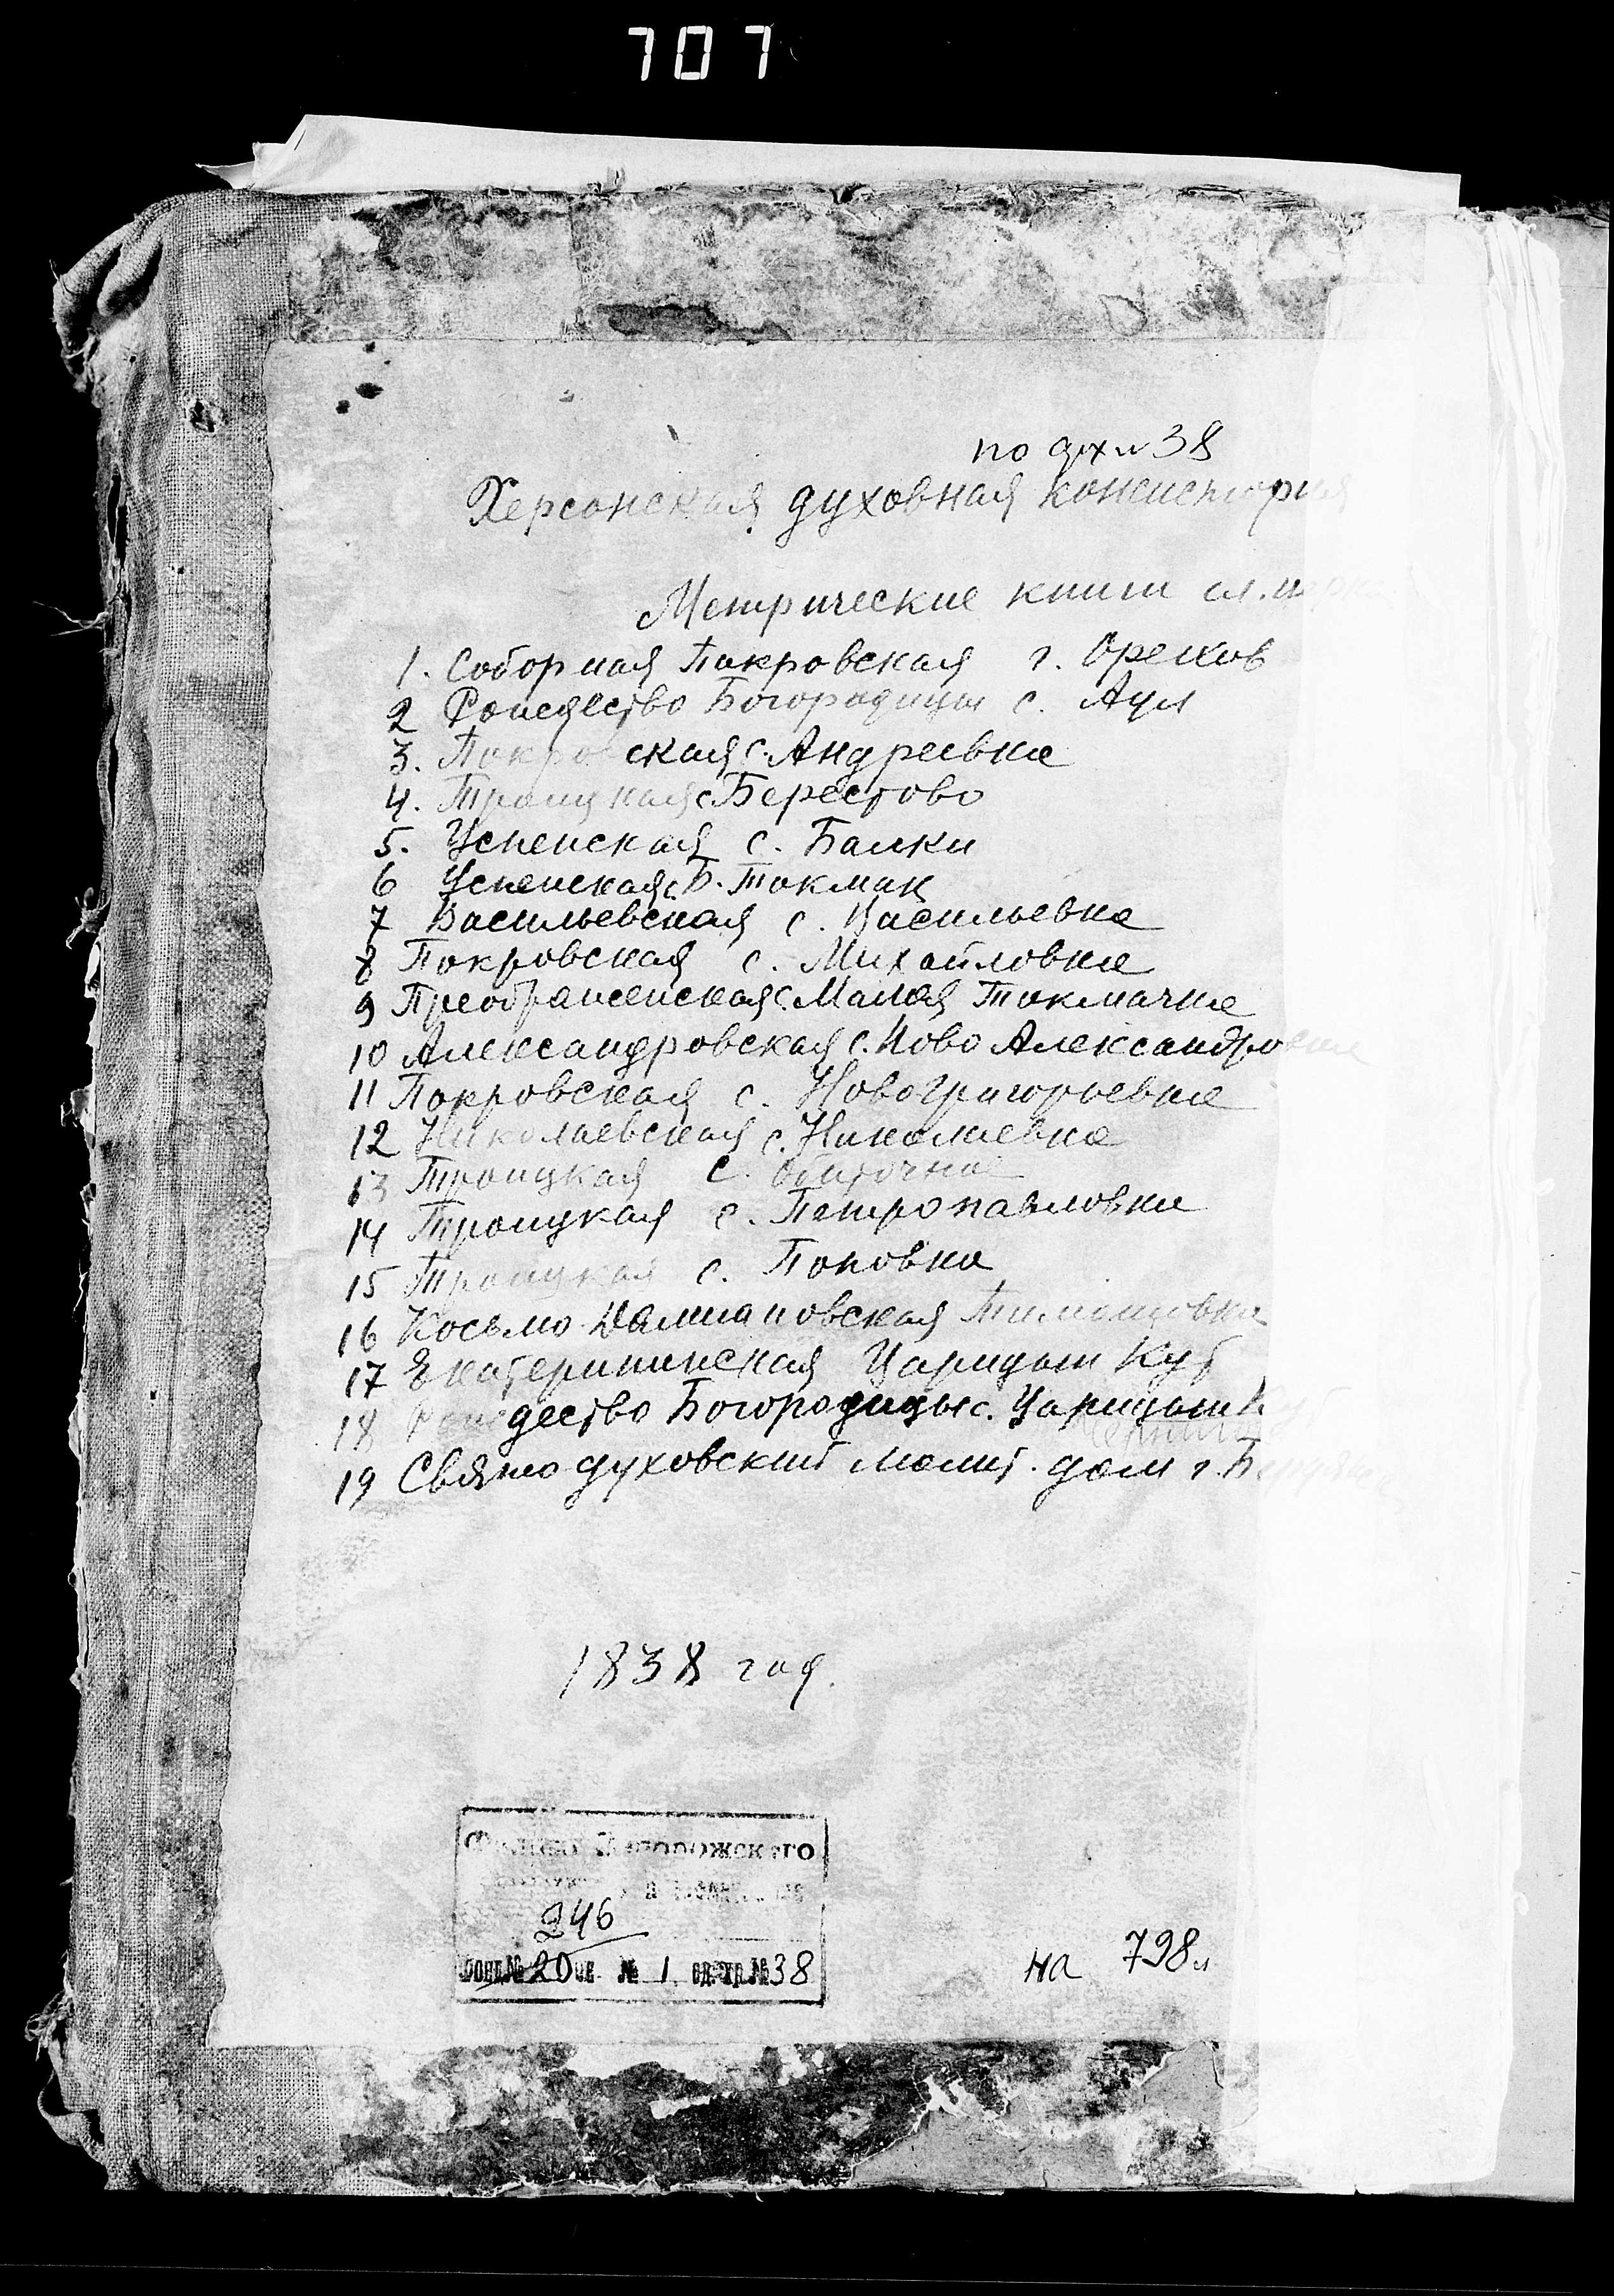 707
по дух № 38
Херсонская духовная консистория
Метрические книги
1. Соборная Покровская г. Орехов
2 Рождество Богородицы с. Аул
3. Покровская с. Андреевка
4. Троицкая с Берестово
5. Успенская с. Балки
6 Успенская с Б. Токмак
7 Васильевская с. Васильевка
8 Покровская с. Михайловка
9 Преображенская с. Малая Токмачка
10 Александровская с. Ново Александровка
11 Покровская с. Новогригорьевка
12 Николаевская с. Николаевка
13 Троицкая с. Обиточное
14 Троицкая с. Петропавловка
15 Троицкая с. Поповка
16 Косьмо Дамиановская Тимошовка
17 Екатерининская Царицын Кут
18 Рождество Богородицы с. Царицын
19 Свято духовский молит. дом г.
1838 год.
Запорожского
246
фонд № 20 оп. № 1 ед. хр. № 38
на 798 л